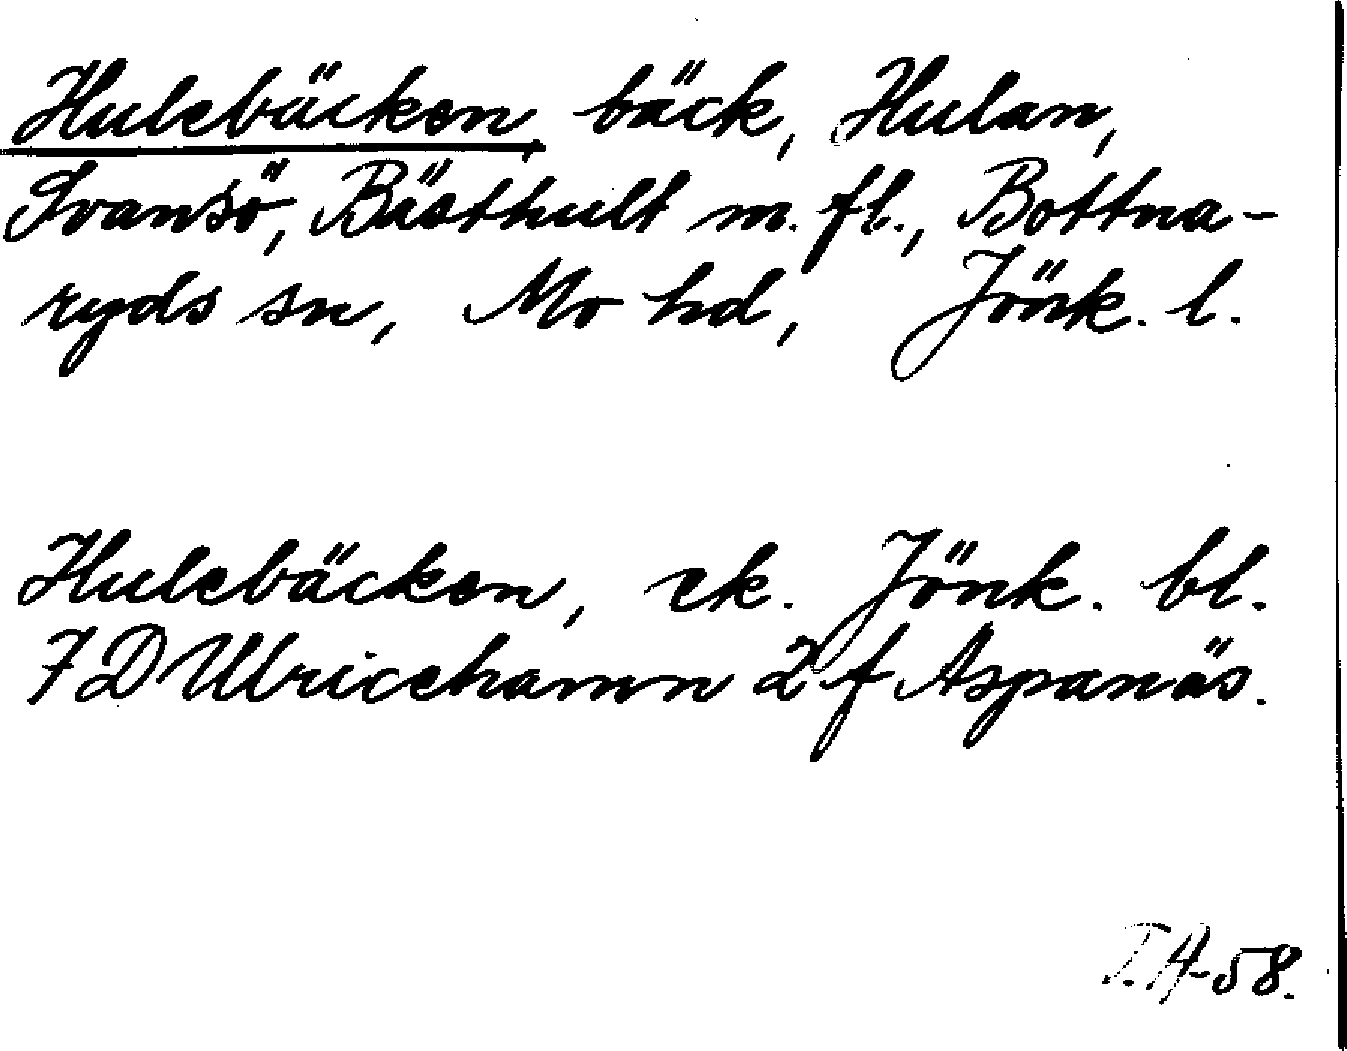 Hulebäcken, bäck, Hulan,
Svansö, Bästhult m.fl., Bottna-
ryds sn, Mo hd, Jönk. l.
Hulebäcken, ek. Jönk. bl.
7D Ulricehamn 2 f Aspanäs.
I.H-58.